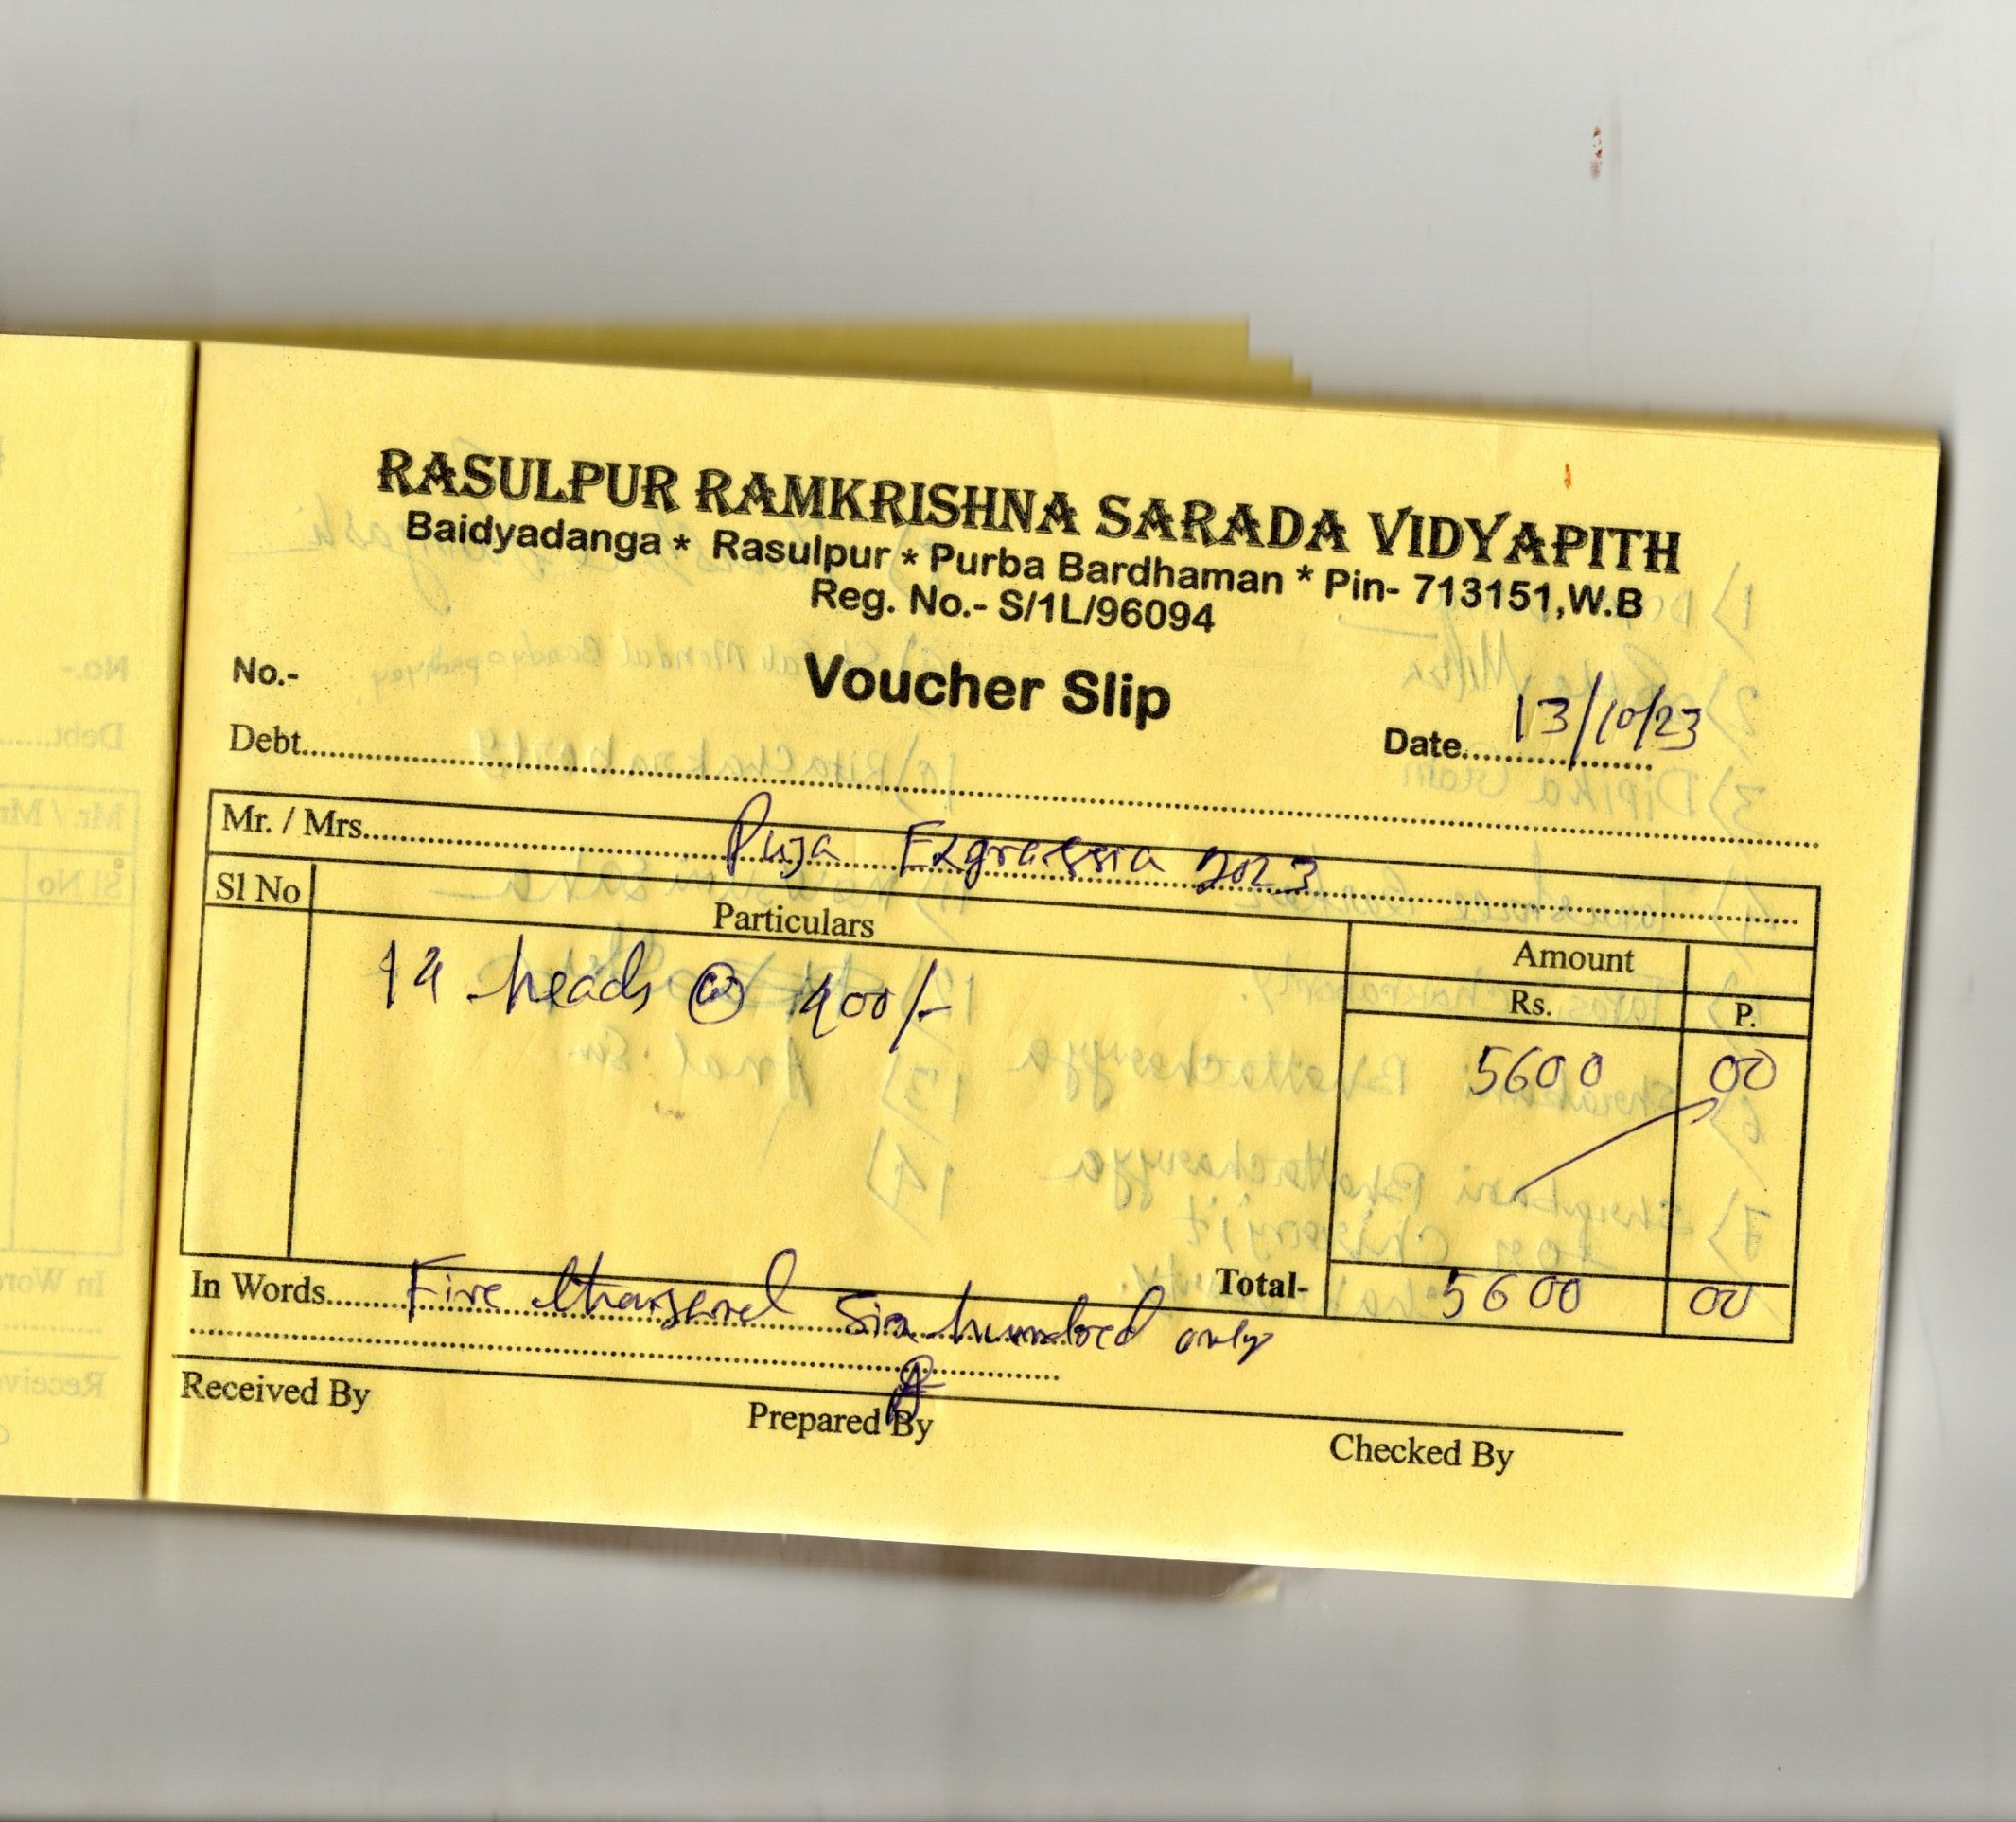 RASULPUR RAMKRISHNA SARADA VIDYAPITH
Baidyadanga * Rasulpur * Purba Bardhaman * Pin- 713151,W.B
Reg. No.- S/1L/96094
No.- Voucher Slip
Date 13/10/23
Debt
Mr. / Mrs. Puja Exgressia 2023
Sl No Particulars Amount
Rs. P.
14 heads @ 400/- 5600 00
Total- 5600 00
In Words Five thousand Six hundred only
Received By Prepared By Checked By